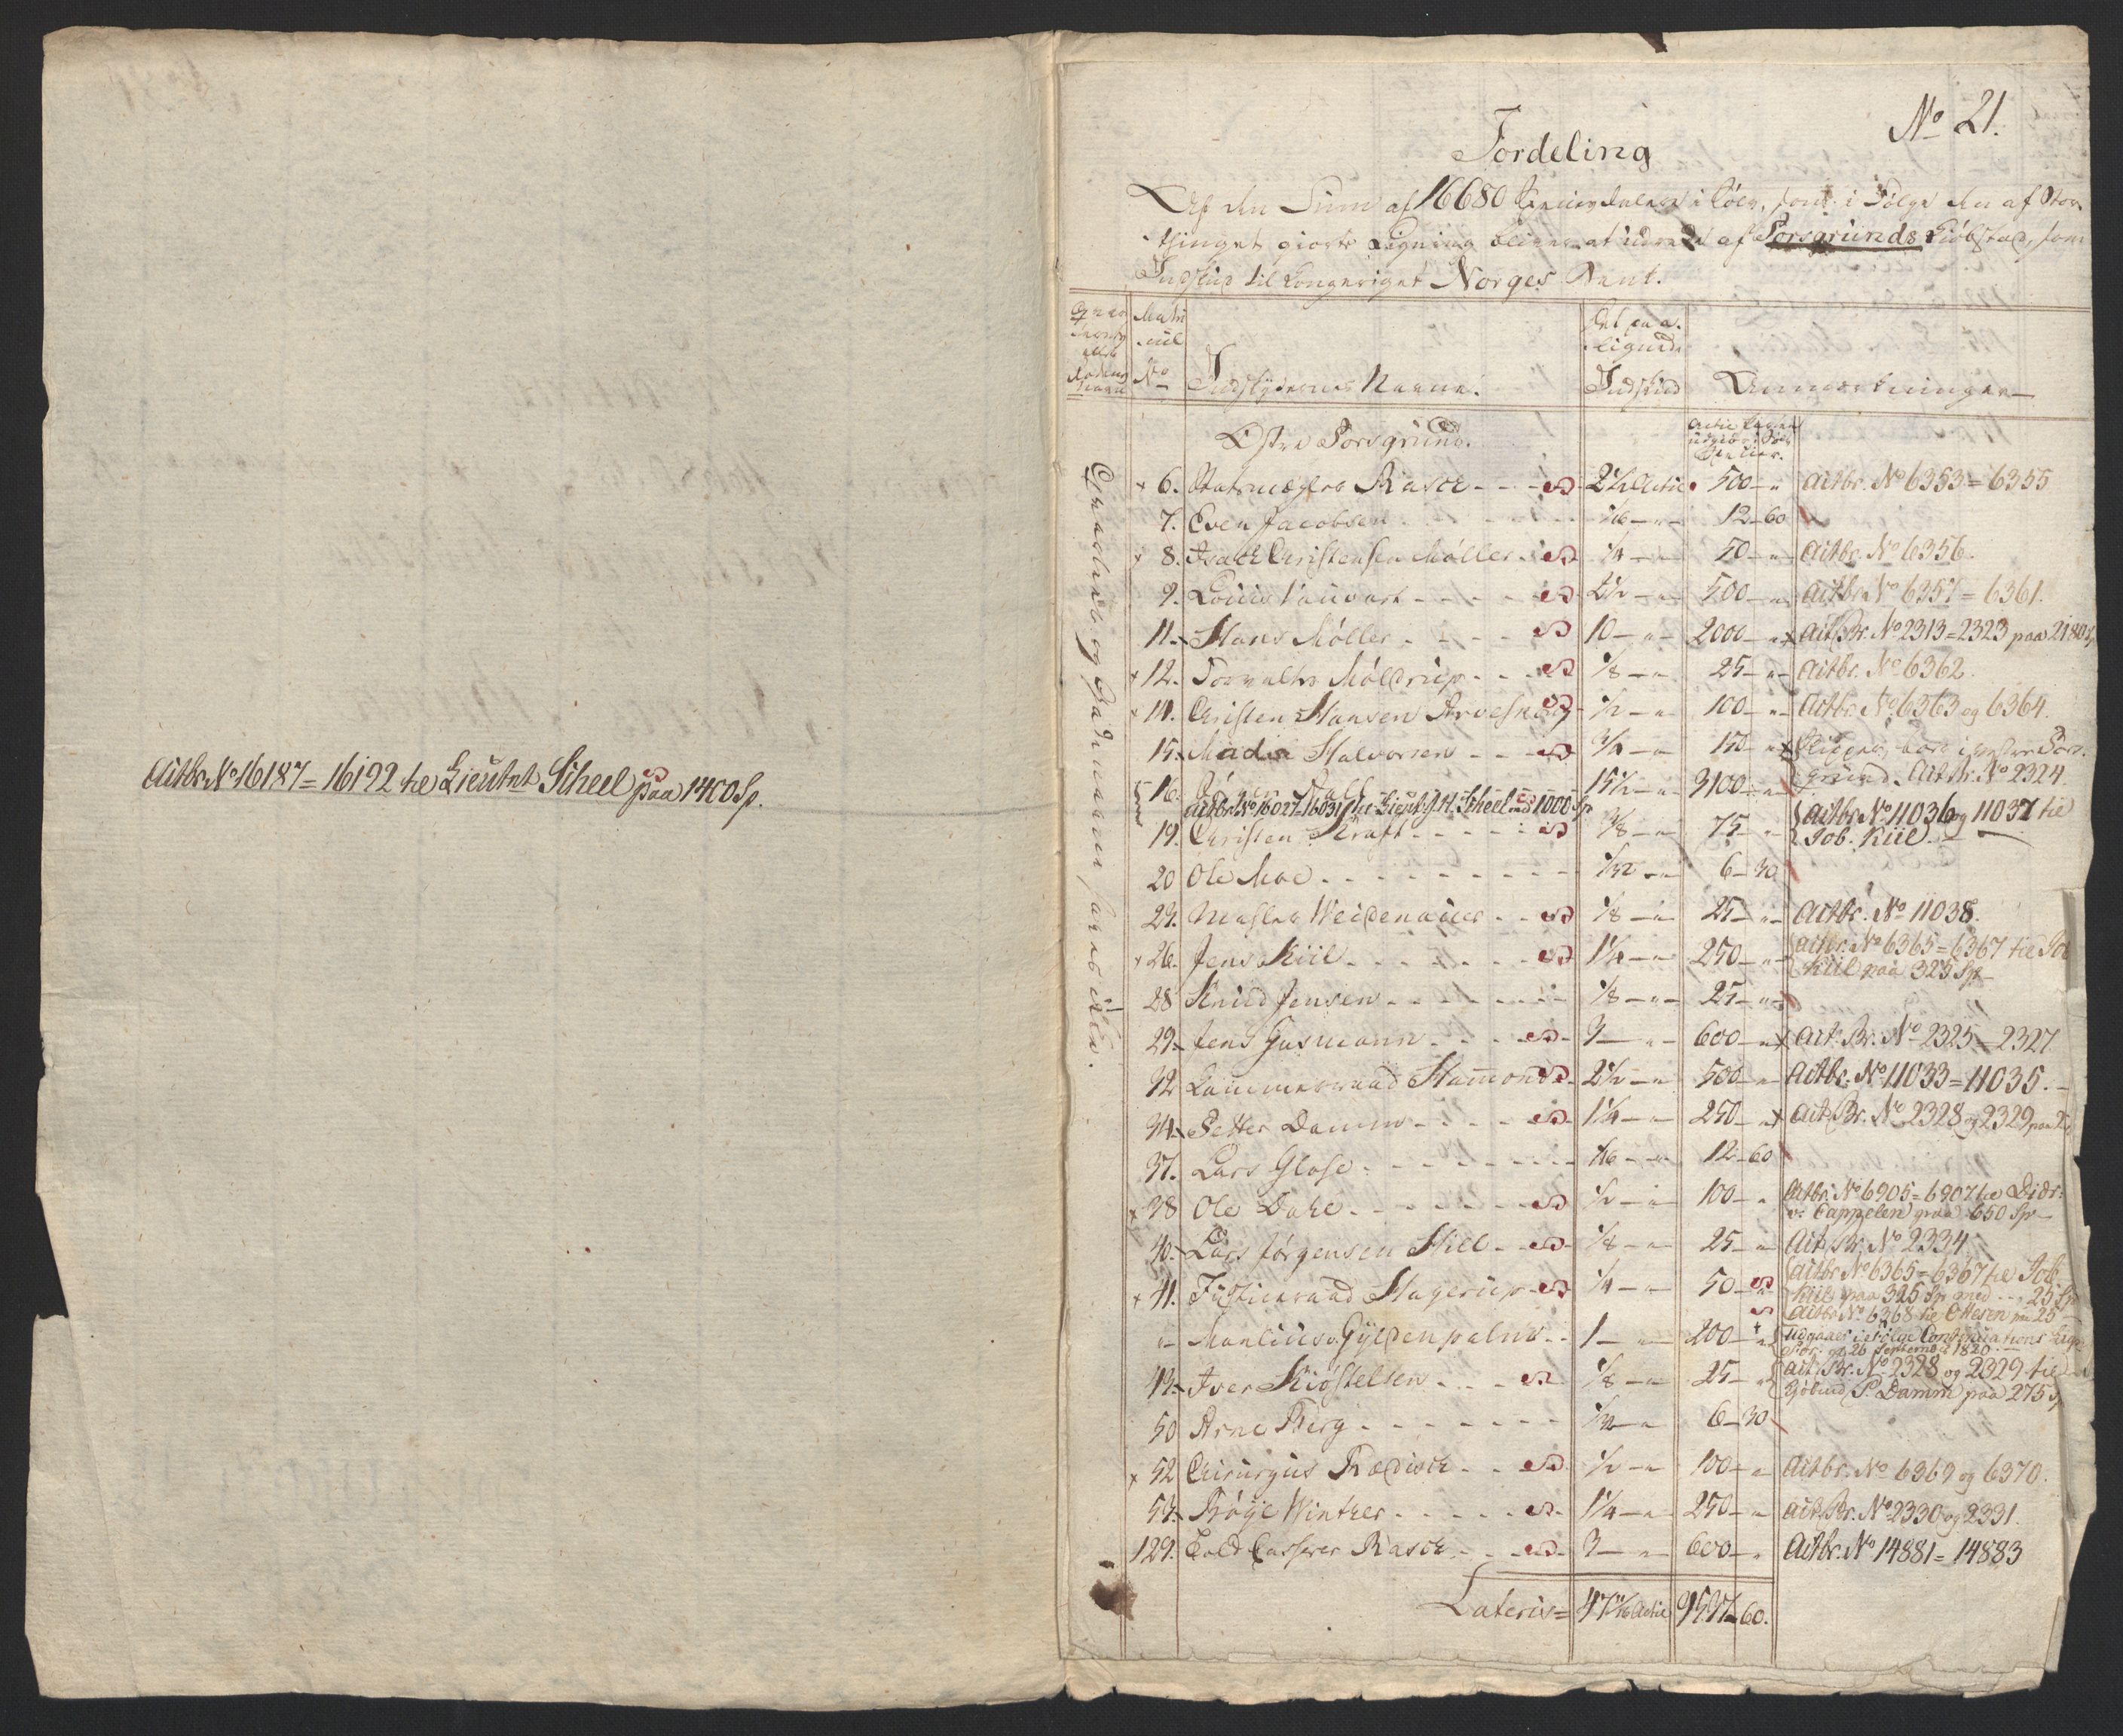 Actbr. No 16187 = 16192 til Lieutnt Scheel paa 1400 Sp.
No 21.
Fordeling
Af den Sum af 16680 Speciesdaler i Sølv, som i Følge den af Stor
thinget giorte Ligning bliver at udrede af Porsgrunds Kiøbstad, som
Indskud til Kongeriget Norges Bank.
Matri
cul
No
Indskydernes Navne.
Det paa
lignede
Indskud
Anmærkninger
Østre Porsgrund.
6. Stadsmægler Rasch - - - 2 1/2 Actie 500 - " Actbr. No 6353 = 6355
7. Even Jacobsen 1/16 - " - 12 - 60
8. Isach Christensen Møller 1/4 - " - 50 - " Actbr. No 6356.
9. Louis Vauvert - - - 2 1/2 - " 500 - " Actbr. No 6357 = 6361.
11. Hans Møller - - - 10 - " - 2000 - " Act. Br. No 2313 = 2323 paa 2180 Sp
12. Møldrup - - - 1/8 - " 25 - " Actbr. No 6362.
14. Christen Hansen Arveskoug 1/2 - " 100 - " Actbr. No 6363 og 6364.
15. Madm Halvorsen - - 3/4 - " 150 - " Ligger, bor i vestre Pors-
grund. Act. Br. No 2324
16. 15 1/2 - " 3100 - "
Actbr. No 16027 = 16031 til Lieut. J. H. Scheel med 1000 Sp
19. Christen Kraft - - - 3/8 - " 75 - " Actbr. No 11036 og 11037 til
Job. Kiil.
20 Ole Moe - - - 1/32 - " 6 - 30
23. Weidenauer - - 1/8 - " 25 - " Actbr. No 11038.
26. Jens Kiil - - - 1 1/4 - " 250 - " Actbr. No 6365 = 6367 til Job
Kiil paa 325 Sp
28 Knud Jensen - - - 1/8 - " 25 - "
29. Jens Gasmann - - - 3 - " 600 - " Act. Br. No 2325 = 2327
32 Kammerraad Hammond 2 1/2 - " 500 - " Actbr. No 11033 = 11035.
34. Petter Damm - - - 1 1/4 - " 250 - " Act. Br. No 2328 og 2329 paa
37. Lars Glose - - - 1/16 - " 12 - 60
38 Ole Dahl - - - 1/2 - " 100 - " Actbr. No 6905 = 6907 til Didr:
v: Cappelen paa 650 Sp
40. Lars Jørgensen Hill - - 1/8 - " 25 - " Act. Br. No 2334
41. Justicraad Hagerup 1/4 - " 50 Actbr. No 6365 = 6367 til Job.
Kiil paa 325 Sp med - - 25 Sp
Actbr. No 6368 til Ottesen paa 25
" Manlius Gyldenpalm - - 1 - " 200 - " Udgaaet ifølge Continuations
26 September 1820.
43. Iver Kiøstelsen - - - 1/8 - " 25 - " Act. Br. No 2328 og 2329 til
P. Damm paa 275 Sp
50 Arne Berg - - - 1/32 - " 6 - 30
52 Chirurgus Rødisch - - 1/2 - " 100 - " Actbr. No 6369 og 6370.
53. Bøye Winther - - - 1 1/4 - " 250 - " Act. Br. No 2330 og 2331.
129. Toldcasserer Rasch - - 3 - " 600 - " Actbr. No 14881 = 14883
Lateris = 47 11/16 Actie 9537 - 60.